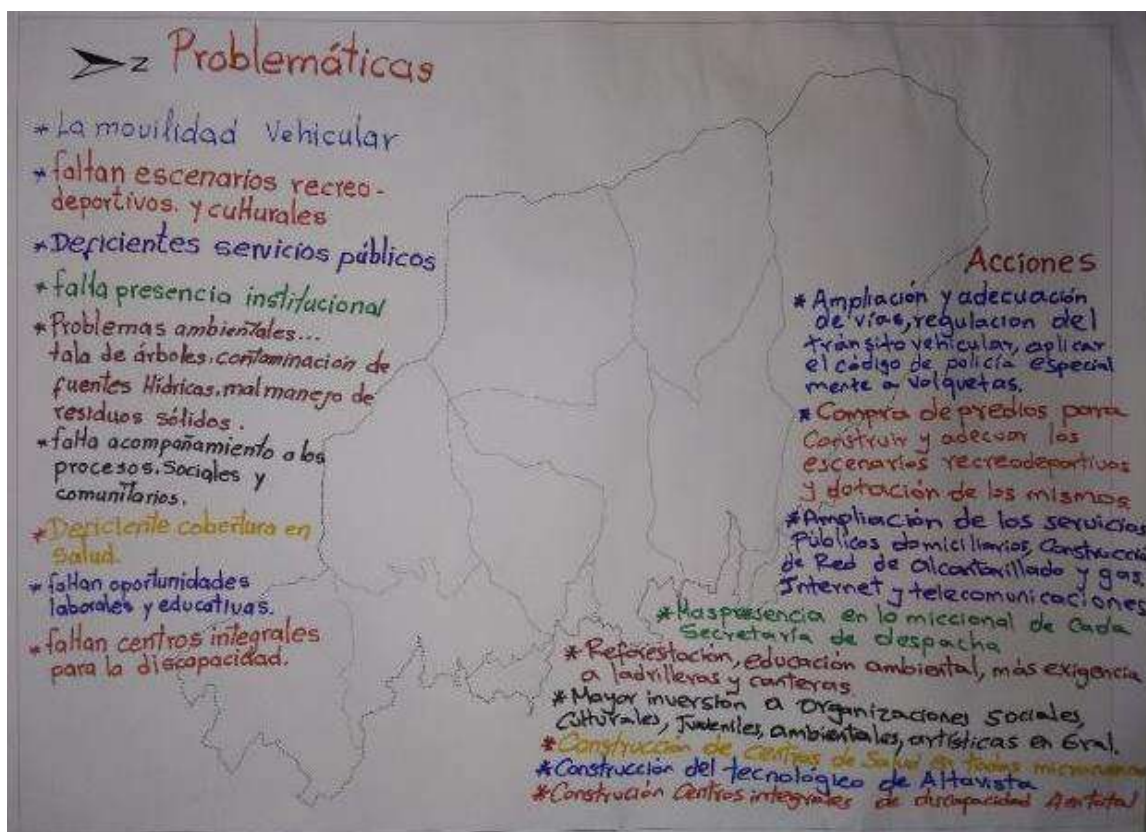 Z Problemáticas
* La movilidad Vehicular
* faltan escenarios recreo-
deportivos. y culturales
* Deficientes servicios públicos
* falta presencia institucional
* Problemas ambientales...
tala de árboles, contaminación de
fuentes Hídricas, mal manejo de
residuos sólidos.
* falta acompañamiento a los
procesos. Sociales y
comunitarios.
* Deficiente cobertura en
Salud.
* faltan oportunidades
laborales y educativas.
* faltan centros integrales
para la discapacidad.
Acciones
* Ampliación y adecuación
de vías, regulacion del
tránsito vehicular, aplicar
el código de policía especial
mente a volquetas.
* Compra de predios para
Construir y adecuar los
escenarios recreodeportivos
y dotación de los mismos
* Ampliación de los servicios
Públicos domiciliarios, Construcció
de Red de alcantarillado y gas
Internet y telecomunicaciones
* Mas presencia en lo miccional de Cada
Secretaría de despacha
* Reforestación, educación ambiental, más exigencia
a ladrilleras y canteras
* Mayor inversión a organizaciones Sociales,
Culturales, Juveniles, ambientales, artísticas en Gral.
* Construcción de Centros de Salud en todas
* Construcción del tecnológico de Altavista
* Construción Centros integrales de discapacidad